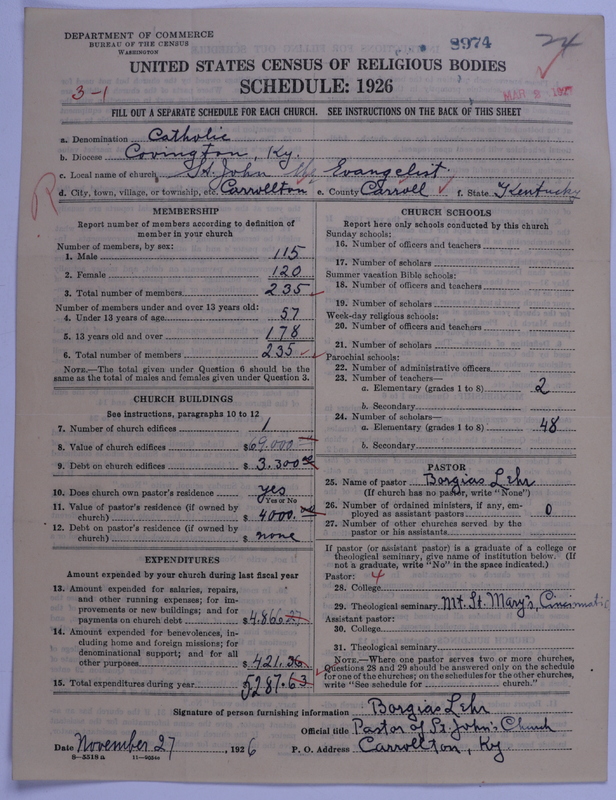 DEPARTMENT OF COMMERCE
BUREAU OF THE CENSUS
WASHINGTON
8974
24
UNITED STATES CENSUS OF RELIGIOUS BODIES
SCHEDULE: 1926
3-1
MAR 8 1927
FILL OUT A SEPARATE SCHEDULE FOR EACH CHURCH. SEE INSTRUCTIONS ON THE BACK OF THIS SHEET
a. Denomination Catholic
b. Diocese Covington, Ky.
c. Local name of church St. John the Evangelist.
d. City, town, village, or township, etc. Carrollton e. County Carroll f. State Kentucky
R
MEMBERSHIP
Report number of members according to definition of
member in your church
Number of members, by sex:
1. Male 115
2. Female 120
3. Total number of members 235
Number of members under and over 13 years old:
4. Under 13 years of age 57
5. 13 years old and over 178
6. Total number of members 235
NOTE.—The total given under Question 6 should be the
same as the total of males and females given under Question 3.
CHURCH BUILDINGS
See instructions, paragraphs 10 to 12
7. Number of church edifices 1
8. Value of church edifices $69.000
9. Debt on church edifices $3.300
10. Does church own pastor's residence yes
Yes or No
11. Value of pastor's residence (if owned by
church) $4000.
12. Debt on pastor's residence (if owned by
church) $none
EXPENDITURES
Amount expended by your church during last fiscal year
13. Amount expended for salaries, repairs,
and other running expenses; for im-
provements or new buildings; and for
payments on church debt $4.866.27
14. Amount expended for benevolences, in-
cluding home and foreign missions; for
denominational support; and for all
other purposes $421.36
15. Total expenditures during year 5287.63
CHURCH SCHOOLS
Report here only schools conducted by this church
Sunday schools:
16. Number of officers and teachers
17. Number of scholars
Summer vacation Bible schools:
18. Number of officers and teachers
19. Number of scholars
Week-day religious schools:
20. Number of officers and teachers
21. Number of scholars
Parochial schools:
22. Number of administrative officers
23. Number of teachers—
a. Elementary (grades 1 to 8) 2
b. Secondary
24. Number of scholars—
a. Elementary (grades 1 to 8) 48
b. Secondary
PASTOR
25. Name of pastor Borgias Lehr
(If church has no pastor, write "None")
26. Number of ordained ministers, if any, em-
ployed as assistant pastors 0
27. Number of other churches served by the
pastor or his assistants
If pastor (or assistant pastor) is a graduate of a college or
theological seminary, give name of institution below. (If
not a graduate, write "No" in the space indicated.)
Pastor: 4
28. College
29. Theological seminary Mt. St. Mary's, Cincinnati
Assistant pastor:
30. College
31. Theological seminary
NOTE.—Where one pastor serves two or more churches,
Questions 28 and 29 should be answered only on the schedule
for one of the churches; on the schedules for the other churches,
write "See schedule for church."
Signature of person furnishing information Borgias Lehr
Official title Pastor of St. John's Church
Date November 27, 1926 P. O. Address Carrollton, Ky
8—5318 a